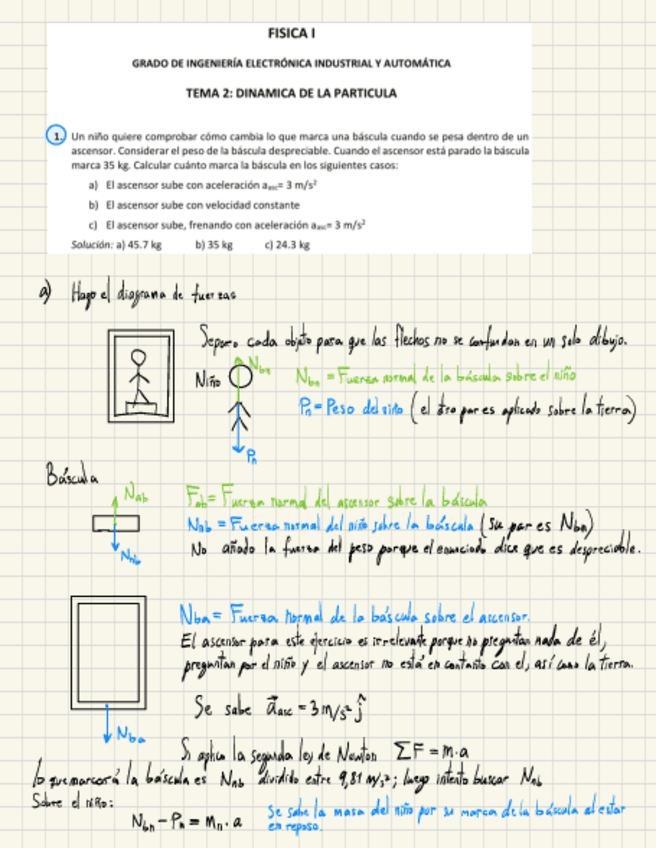 FISICA I
GRADO DE INGENIERÍA ELECTRÓNICA INDUSTRIAL Y AUTOMÁTICA
TEMA 2: DINAMICA DE LA PARTICULA
1. Un niño quiere comprobar cómo cambia lo que marca una báscula cuando se pesa dentro de un
ascensor. Considerar el peso de la báscula despreciable. Cuando el ascensor está parado la báscula
marca 35 kg. Calcular cuánto marca la báscula en los siguientes casos:
a) El ascensor sube con aceleración aₐₛ꜀= 3 m/s²
b) El ascensor sube con velocidad constante
c) El ascensor sube, frenando con aceleración aₐₛ꜀= 3 m/s²
Solución: a) 45.7 kg b) 35 kg c) 24.3 kg
a) Hago el diagrama de fuerzas
Separo cada objeto para que las flechas no se confundan en un solo dibujo.
Niño
Nbn
Nbn = Fuerza normal de la báscula sobre el niño
Pn = Peso del niño (el otro par es aplicado sobre la tierra)
Pn
Báscula
Nab
Fab = Fuerza normal del ascensor sobre la báscula
Nnb = Fuerza normal del niño sobre la báscula (su par es Nbn)
Nnb
No añado la fuerza del peso porque el enunciado dice que es despreciable.
Nba = Fuerza normal de la báscula sobre el ascensor.
El ascensor para este ejercicio es irrelevante porque no preguntan nada de él,
preguntan por el niño y el ascensor no está en contacto con el, así como la tierra.
Se sabe a⃗asc = 3 m/s² ĵ
Nba
Si aplico la segunda ley de Newton ΣF = m·a
lo que marcará la báscula es Nnb dividido entre 9,81 m/s²; luego intento buscar Nnb
Sobre el niño:
Nbn - Pn = mn · a
Se sabe la masa del niño por su marca de la báscula al estar
en reposo.